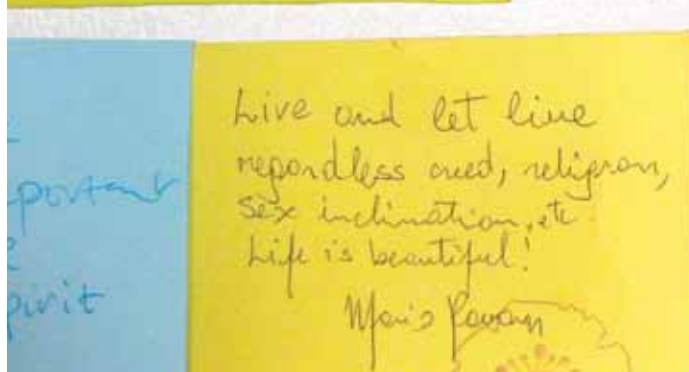 portant
pirit
Live and let live
regardless creed, religion,
sex inclination, etc
Life is beautiful!